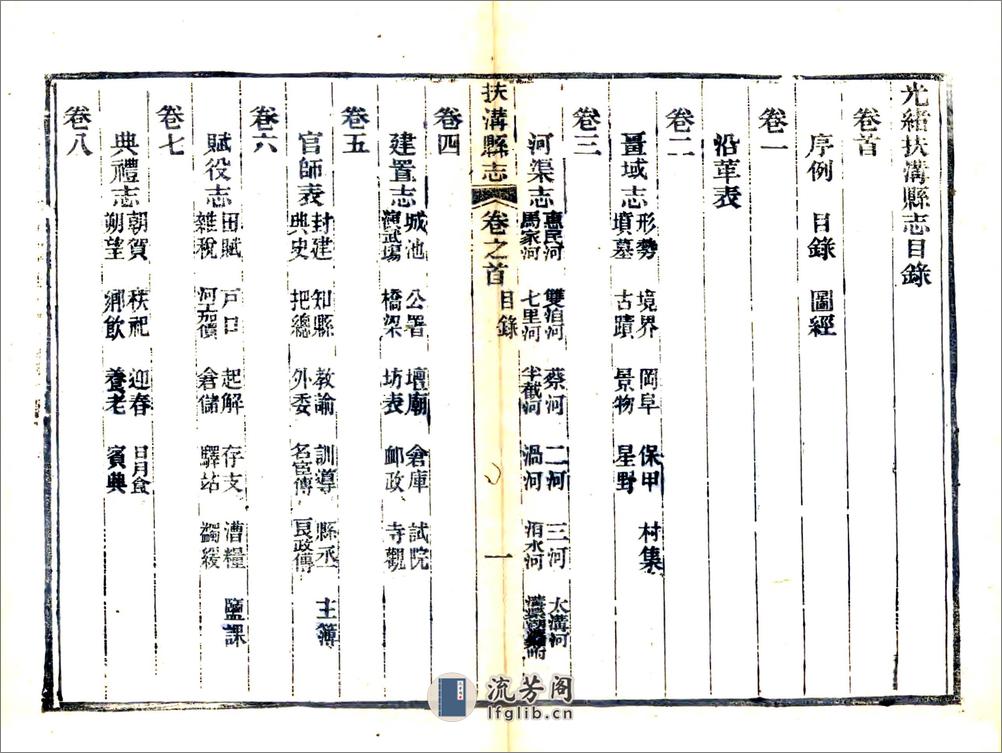 光緒扶溝縣志目錄
卷首
序例 目錄 圖經
卷一
沿革表
卷二
疆域志 形勢 境界 岡阜 保甲 村集
墳墓 古蹟 景物 星野
卷三
河渠志 惠民河 雙洎河 蔡河 二河 三河 太溝河
馬家河 七里河 半截河 渦河 洧水河
扶溝縣志 卷之首 目錄 一
卷四
建置志 城池 公署 壇廟 倉庫 試院
演武場 橋梁 坊表 郵政 寺觀
卷五
官師表 封建 知縣 教諭 訓導 縣丞 主簿
典史 把總 外委 名宦傳 良政傳
卷六
賦役志 田賦 戸口 起解 存支 漕糧 鹽課
雜稅 河工夫價 倉儲 驛站 蠲緩
卷七
典禮志 朝賀 秩祀 迎春 日月食
朔望 鄉飲 養老 賓興
卷八
流芳阁
lfglib.cn